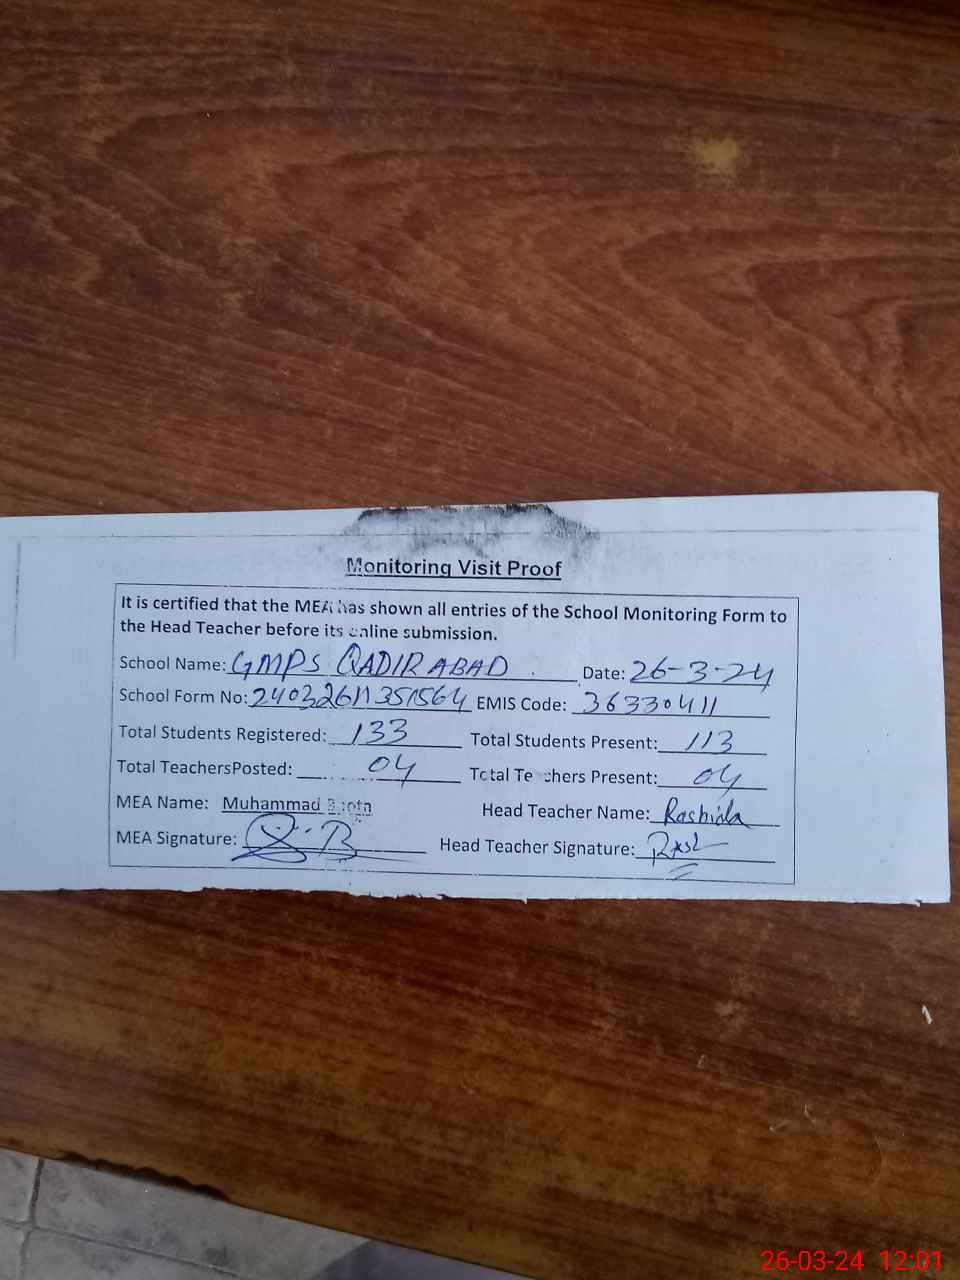 Monitoring Visit Proof
It is certified that the MEA has shown all entries of the School Monitoring Form to
the Head Teacher before its online submission.
School Name: GMPS QADIR ABAD Date: 26-3-24
School Form No: 24032611351564 EMIS Code: 36330411
Total Students Registered: 133 Total Students Present: 113
Total TeachersPosted: 04 Total Teachers Present: 04
MEA Name: Muhammad Head Teacher Name: Rashida
MEA Signature: Head Teacher Signature:
26-03-24 12:01